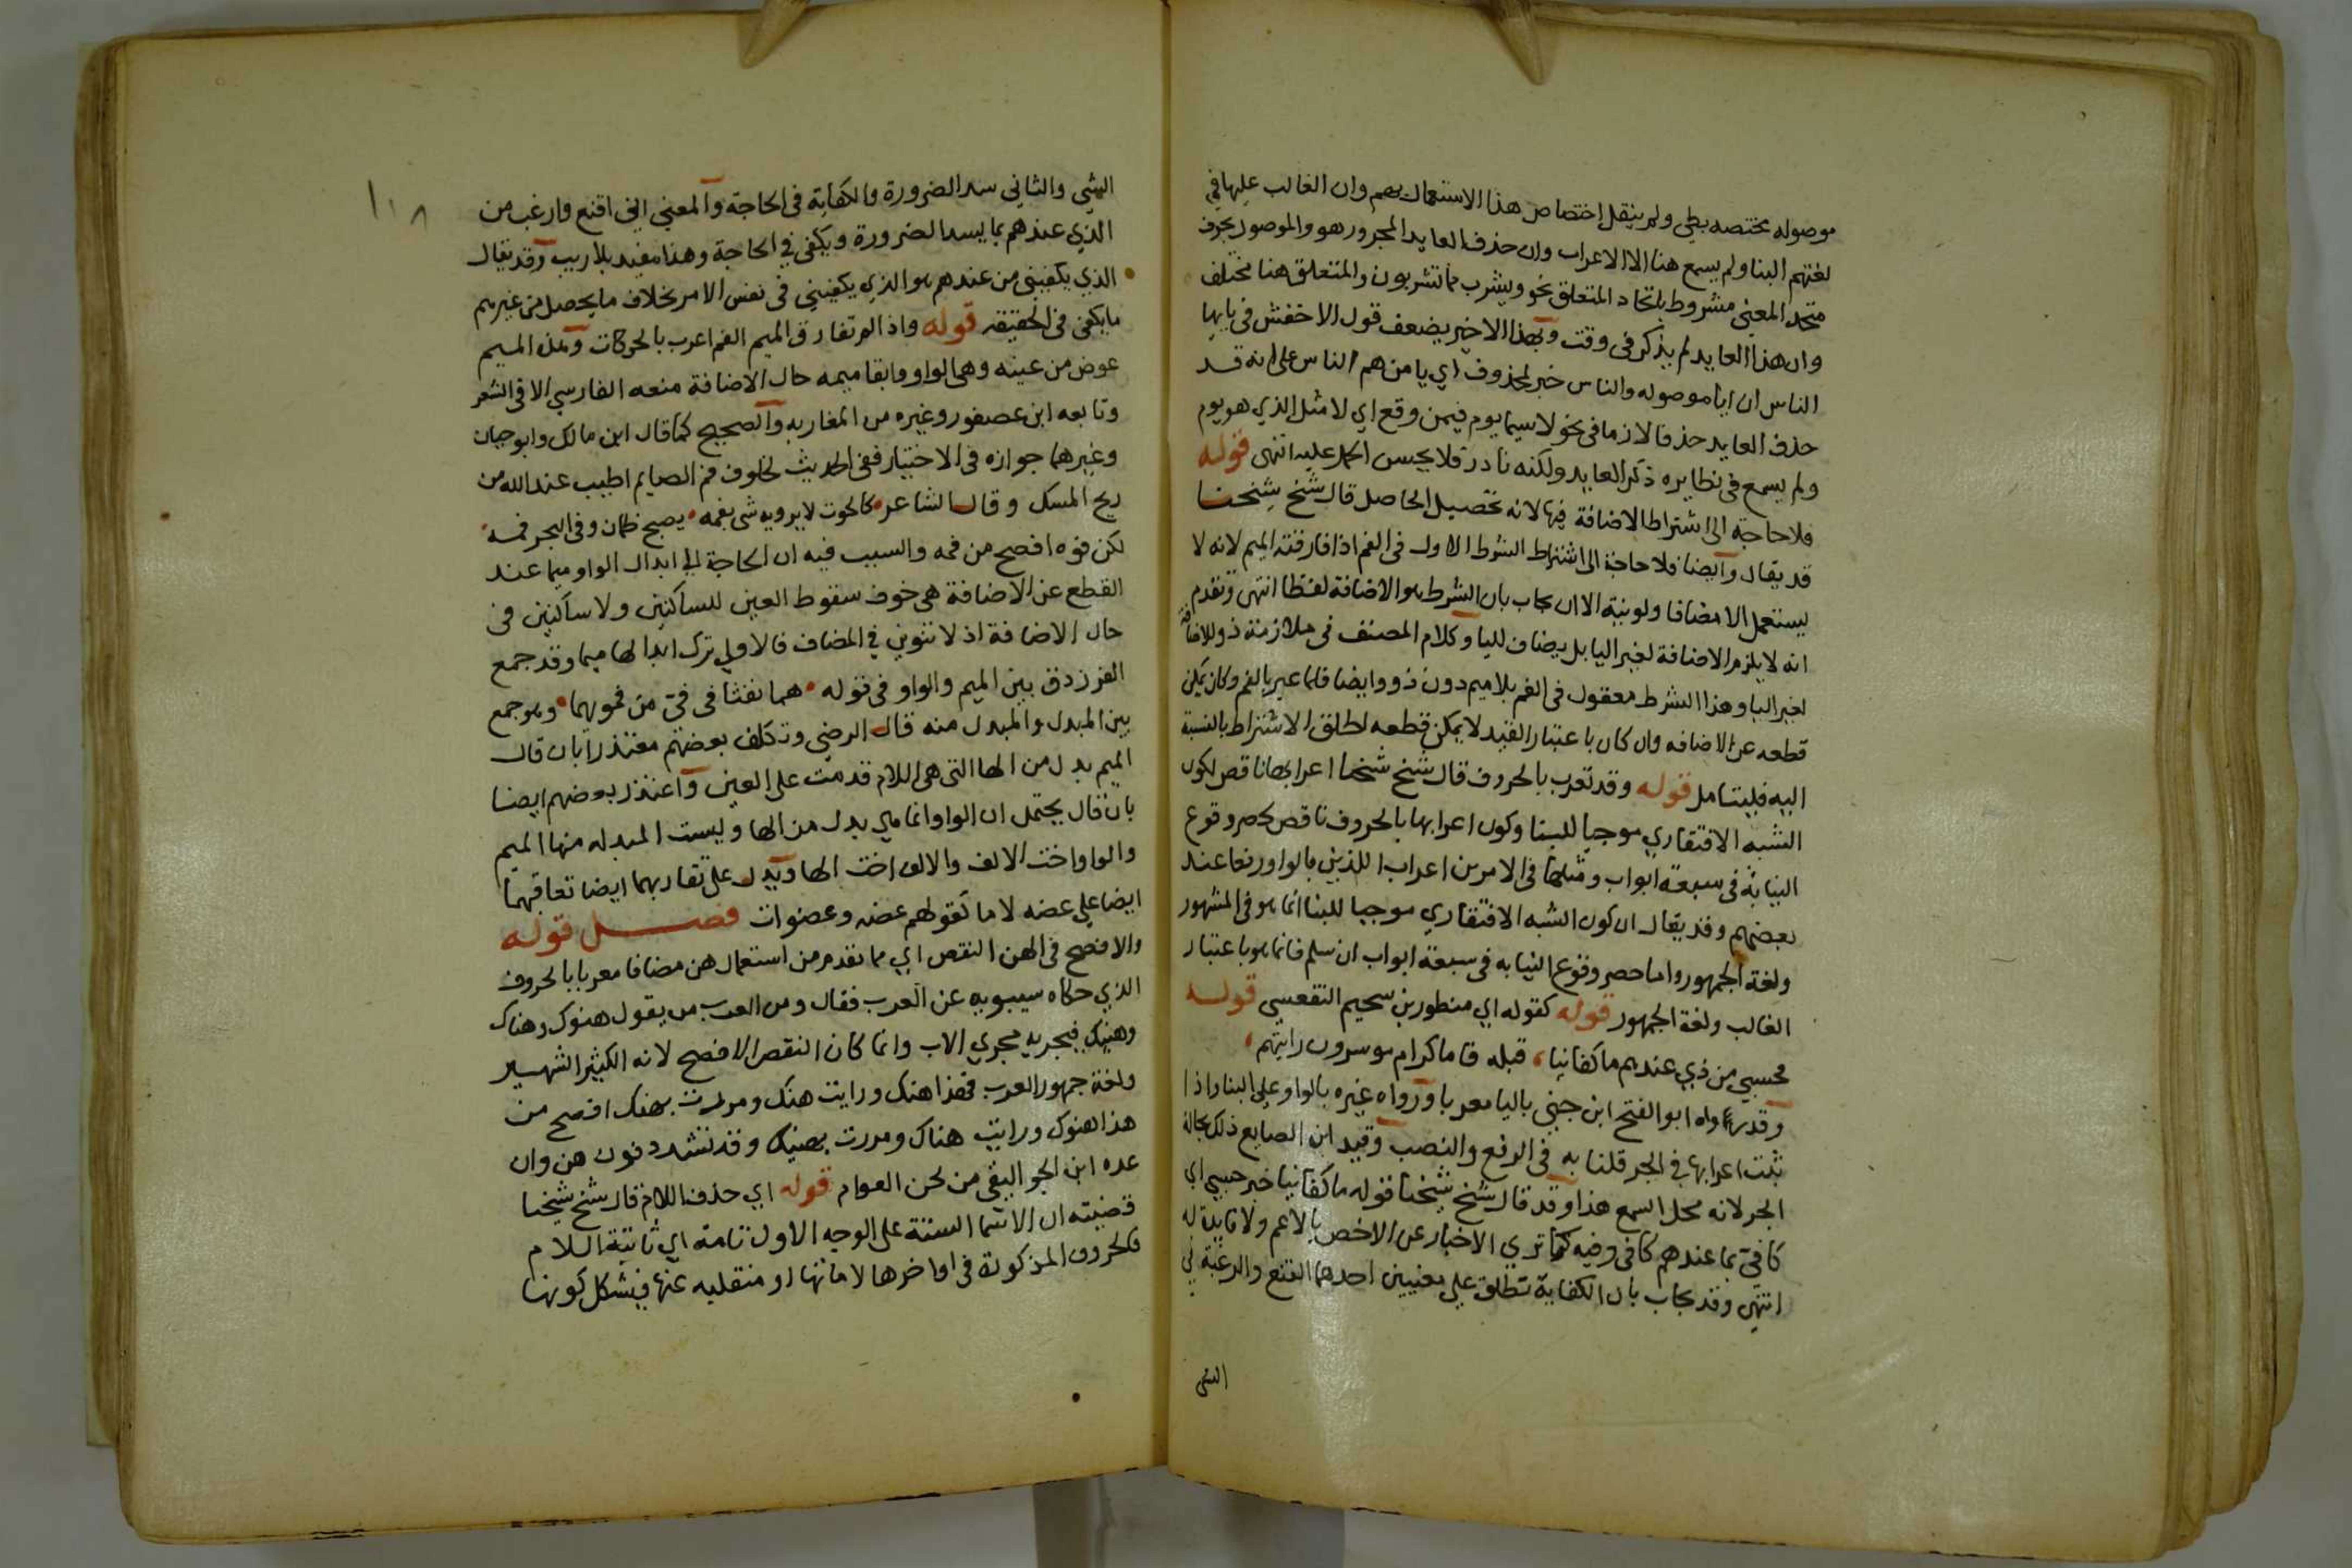 موصوله مختصه بطي ولم ينقل اختصاص هذا الاستعمال بهم وان الغالب عليها في
لغتهم البنا ولم يسمع هنا الا الاعراب وان حذف العايد المجرور هو والموصول بحرف
متحد المعني مشروط باتحاد المتعلق نحو ويشرب مما تشربون والمتعلق هنا مختلف
وان هذا العايد لم يذكر في وقت وبهذا الاخير يضعف قول الاخفش في يايها
الناس ان ايا موصوله والناس خبر لمحذوف اي يا من هم الناس على انه قد
حذف العايد حذفا لازما في نحو لاسيما يوم فيمن وقع اي لا مثل الذي هو يوم
ولم يسمع في نظايره ذكر العايد ولكنه نادر فلا يحسن الحمل عليه انتهى قوله
فلا حاجة الى اشتراط الاضافة فيها لانه تحصيل الحاصل قال شيخ شيخنا
قد يقال وايضا فلا حاجة الى اشتراط الشرط الاول في الفم اذا فارقته الميم لانه لا
يستعمل الا مضافا ولو بنية الا ان يجاب بان الشرط هو الاضافة لفظا انتهى وتقدم
انه لا يلزم الاضافة لغير اليا بل يضاف لليا وكلام المصنف في ملازمة ذو للاضافة
لغير اليا وهذا الشرط معقول في الفم بلا ميم دون ذو وايضا فلما عبر بالفم وكان يمكن
قطعه عن الاضافه وان كان باعتبار القيد لا يمكن قطعه اطلق الاشتراط بالنسبة
اليه فليتامل قوله وقد تعرب بالحروف قال شيخ شيخنا اعرابها ناقص لكون
الشبه الافتقاري موجبا للبنا وكون اعرابها بالحروف ناقص لحصر وقوع
النيابة في سبعة ابواب ومثلها في الامرين اعراب اللذين بالواو رفعا عند
بعضهم وقد يقال ان كون الشبه الافتقاري موجبا للبنا انما هو في المشهور
ولغة الجمهور واما حصر وقوع النيابه في سبعة ابواب ان سلم فانما هو باعتبار
الغالب ولغة الجمهور قوله كقوله اي منظور بن سحيم الفقعسي قوله
فحسبي من ذي عندهم ما كفانيا، قبله فاما كرام موسرون رايتهم،
وقد رواه ابو الفتح ابن جني باليا معربا ورواه غيره بالواو على البنا واذا
ثبت اعرابها في الجر قلنا به في الرفع والنصب وقيد ابن الصايع ذلك بحالة
الجر لانه محل السمع هذا وقد قال شيخ شيخنا قوله ما كفانيا خبر حسبي اي
كافي بما عندهم كافي وفيه كما ترى الاخبار عن الاخص بالاعم ولا فايدة له
انتهى وقد يجاب بان الكفاية تطلق على معنيين احدهما القنع والرغبة في
الشي
١١٨
الشي والثاني سد الضرورة والكفاية في الحاجة والمعني اني اقنع وارغب من
الذي عندهم بما يسد الضرورة ويكفي في الحاجة وهذا مفيد بلا ريب وقد يقال
الذي يكفيني من عندهم هو الذي يكفيني في نفس الامر بخلاف ما يحصل من غيرهم
ما يكفي في الحقيقه قوله واذا لم تفارق الميم الفم اعرب بالحركات وهذه الميم
عوض من عينه وهي الواو وابقا ميمه حال الاضافة منعه الفارسي الا في الشعر
وتابعه ابن عصفور وغيره من المغاربه والصحيح كما قال ابن مالك وابو حيان
وغيرهما جوازه في الاختيار ففي الحديث لخلوف فم الصايم اطيب عند الله من
ريح المسك وقال الشاعر كالحوت لا يرويه شي يفمه يصبح ظمان وفي البحر فمه
لكن فوه افصح من فمه والسبب فيه ان الحاجة الي ابدال الواو ميما عند
القطع عن الاضافة هي خوف سقوط العين للساكنين ولا ساكنين في
حال الاضافة اذ لا تنوين في المضاف فالاولي ترك ابدالها ميما وقد جمع
الفرزدق بين الميم والواو في قوله هما نفثا في في من فمويهما وهو جمع
بين المبدل والمبدل منه قال الرضي وتكلف بعضهم معتذرا بان قال
الميم بدل من الها التي هي اللام قدمت على العين واعتذر بعضهم ايضا
بان قال يحتمل ان الواو انما هي بدل من الها وليست المبدله منها الميم
والواو اخت الالف والالف اخت الها ويدل على تقاربهما ايضا تعاقبهما
ايضا علي عضه لاما كقولهم عضه وعضوات فصل قوله
والافصح في الهن النقص اي مما تقدم من استعمال هن مضافا معربا بالحروف
الذي حكاه سيبويه عن العرب فقال ومن العرب من يقول هنوك وهناك
وهنيك فيجريه مجري الاب وانما كان النقص الافصح لانه الكثير الشهير
ولغة جمهور العرب فهذا هنك ورايت هنك ومررت بهنك افصح من
هذا هنوك ورايت هناك ومررت بهنيك وقد تشدد نون هن وان
عده ابن الجواليقي من لحن العوام قوله اي حذف اللام قال شيخ شيخنا
قضيته ان الاسما الستة على الوجه الاول تامة اي ثابتة اللام
فالحروف المذكورة في اواخرها لاماتها او منقلبه عنها فيشكل كونها